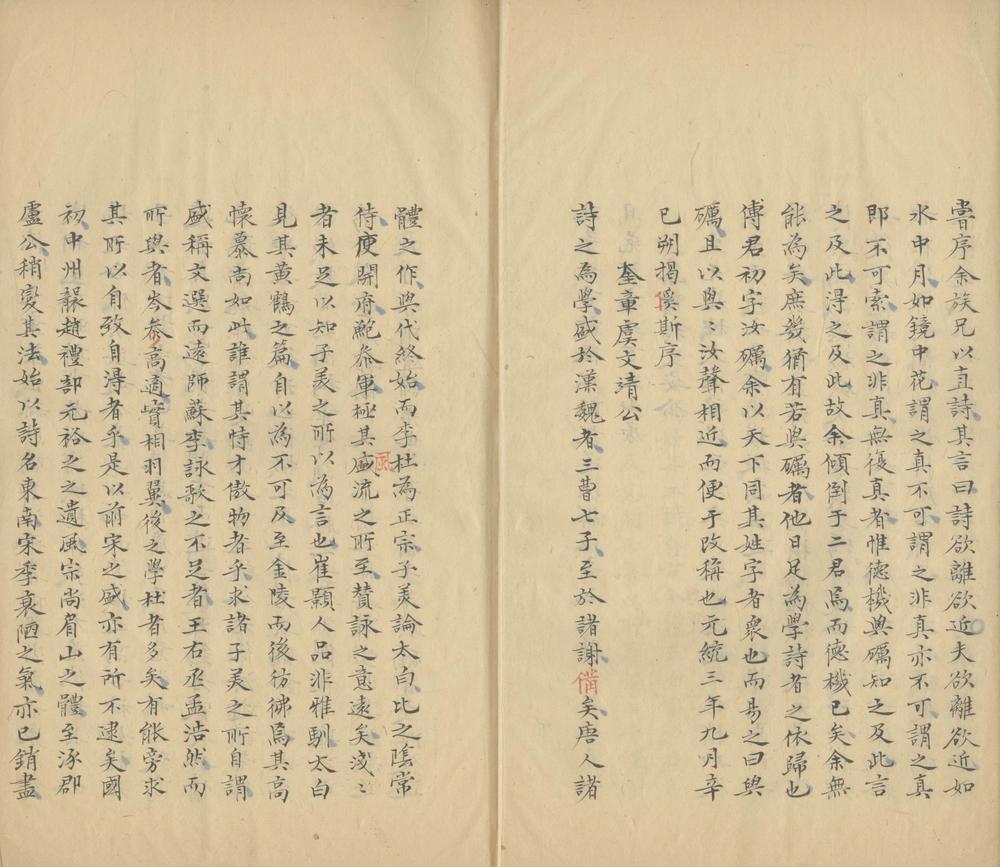 甞序余族兄以直詩其言曰詩欲離欲近夫欲離欲近如
水中月如鏡中花謂之真不可謂之非真亦不可謂之真
即不可索謂之非真無復真者惟德機與礪知之及此言
之及此淂之及此故余傾倒于二君焉而德機已矣余無
能為矣庶幾猶有若與礪者他日足為學詩者之依歸也
傅君初字汝礪余以天下同其姓字者衆也而易之曰與
礪且以與〻汝聲相近而便于改稱也元統三年九月辛
巳朔揭傒斯序
奎章虞文靖公
詩之為學盛於漢魏者三曹七子至於諸謝備矣唐人諸
體之作與代終始而李杜為正宗子美論太白比之陰常
侍庾開府鮑叅軍極其風流之所至賛詠之意遠矣淺〻
者未足以知子美之所以為言也崔顥人品非雅馴太白
見其黄鶴之篇自以為不可及至金陵而後彷彿焉其高
懷慕尚如此誰謂其恃才傲物者乎求諸子美之所自謂
盛稱文選而遠師蘇李詠歌之不足者王右丞孟浩然而
所與者岑參高適實相羽翼後之學杜者多矣有能旁求
其所以自致自淂者乎是以前宋之盛亦有所不逮矣國
初中州襲趙禮部元裕之之遺風宗尚眉山之體至涿郡
盧公稍變其法始以詩名東南宋季衰陋之氣亦已銷盡